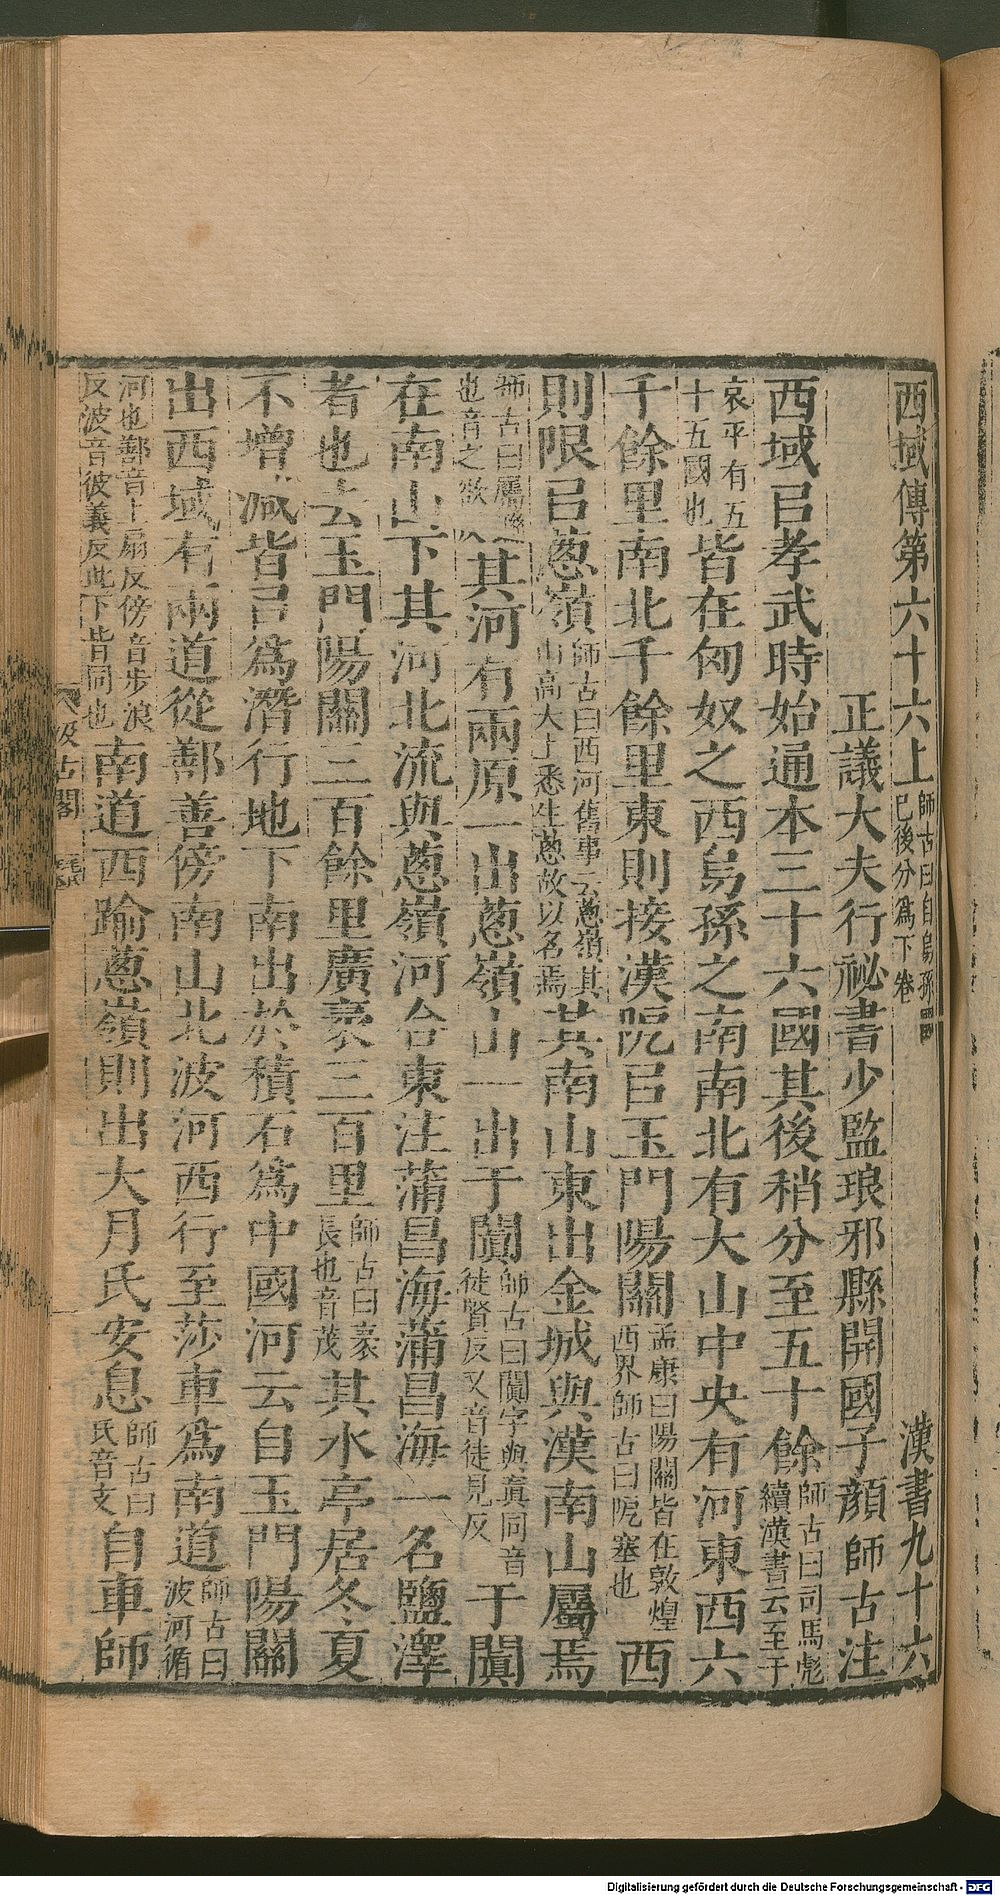 西域傳第六十六上 師古曰自烏孫國已後分爲下卷 漢書九十六
正議大夫行祕書少監琅邪縣開國子顏師古注
西域㠯孝武時始通本三十六國其後稍分至五十餘 師古曰司馬彪續漢書云至于
哀平有五十五國也 皆在匈奴之西烏孫之南南北有大山中央有河東西六
千餘里南北千餘里東則接漢阸㠯玉門陽關 孟康曰陽關皆在敦煌西界師古曰阸塞也 西
則限㠯蔥嶺 師古曰西河舊事云蔥嶺其山高大上悉生蔥故以名焉 其南山東出金城與漢南山屬焉
師古曰屬聮也音之欲 其河有兩原一出蔥嶺山一出于闐 師古曰闐字與寘同音徒賢反又音徒見反 于闐
在南山下其河北流與蔥嶺河合東注蒲昌海蒲昌海一名鹽澤
者也去玉門陽關三百餘里廣袤三百里 師古曰袤長也音茂 其水亭居冬夏
不增減皆㠯爲潛行地下南出於積石爲中國河云自玉門陽關
出西域有兩道從鄯善傍南山北波河西行至莎車爲南道 師古曰波河循
河也鄯音上扇反傍音步浪反波音彼義反此下皆同也 南道西踰蔥嶺則出大月氏安息 師古曰氏音支 自車師
汲古閣
Digitalisierung gefördert durch die Deutsche Forschungsgemeinschaft - DFG